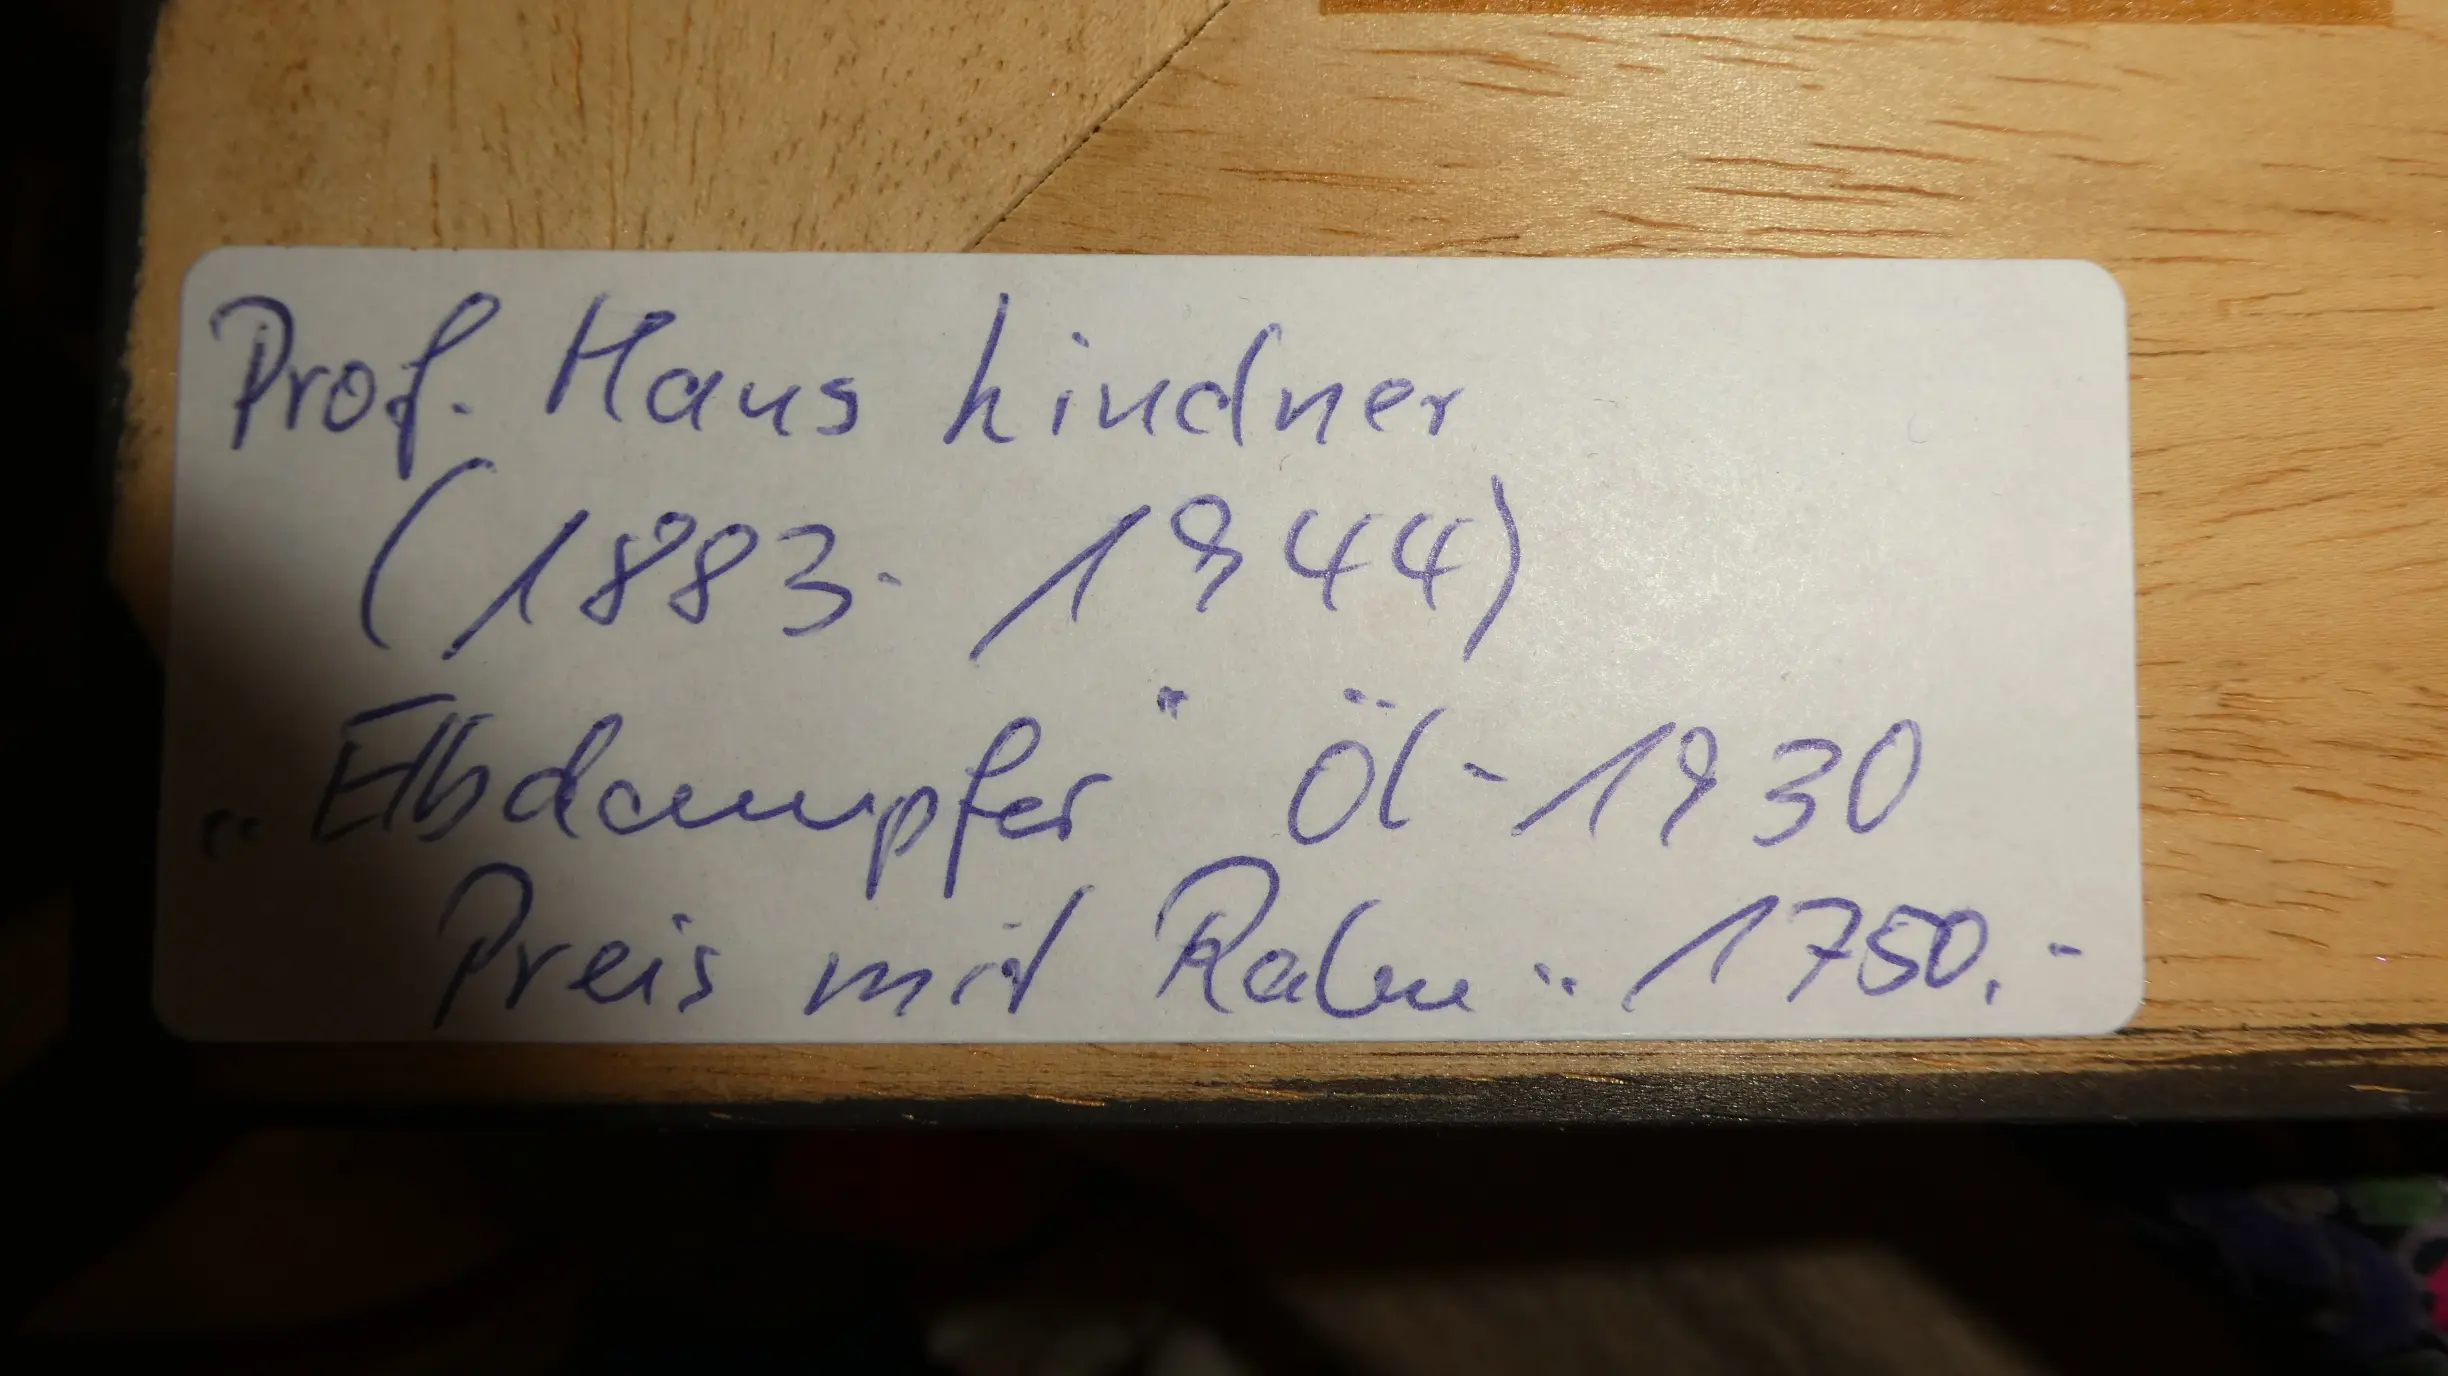 Prof. Hans Lindner
(1883 - 1944)
„Elbdampfer" Öl - 1930
Preis mit Rahm .. 1750.-